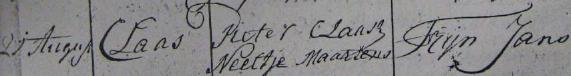 21 August Claas Pieter Claasz Trijn Jans
Neeltje Maartens